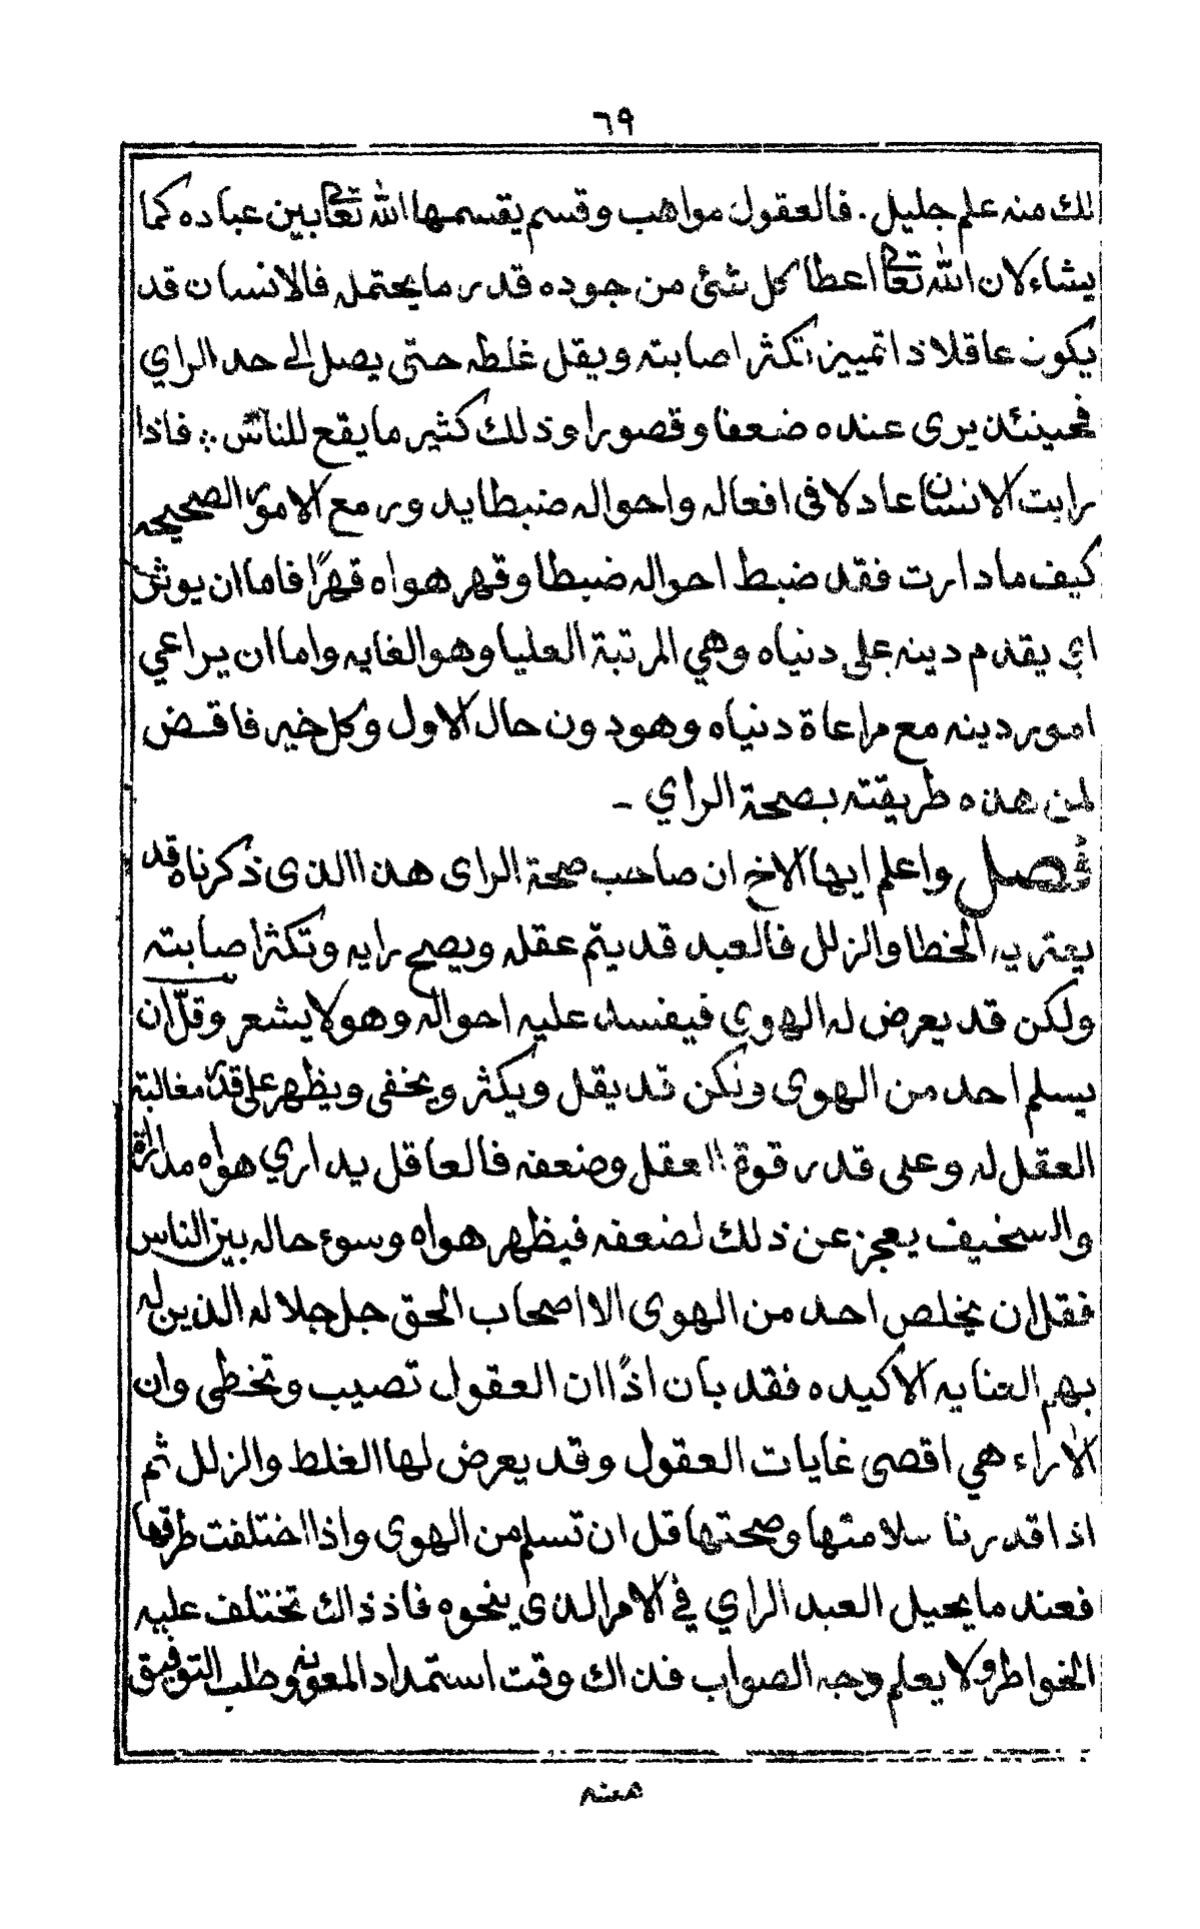 ٦٩
لك منه علم جليل. فالعقول مواهب وقسم يقسمها الله تعالى بين عباده كما
يشاء لان الله تعالى اعطا كل شئ من جوده قدر ما يحتمله فالانسان قد
يكون عاقلا ذا تمييز تكثر اصابته ويقل غلطه حتى يصل الى حد الراي
فحينئذ يرى عنده ضعفا وقصورا وذلك كثير ما يقع للناس ؞ فاذا
رايت الانسان عادلا فى افعاله واحواله ضبطا يدور مع الامور الصحيحه
كيف ما دارت فقد ضبط احواله ضبطا وقهر هواه قهرًا فاما ان يوثر
اي يقدم دينه على دنياه وهي المرتبة العليا وهو الغايه واما ان يراعي
امور دينه مع مراعاة دنياه وهو دون حال الاول وكل خير فاقض
لمن هذه طريقته بصحة الراي -
فصل واعلم ايها الاخ ان صاحب صحة الراى هذا الذى ذكرناه قد
يعتريه الخطا والزلل فالعبد قد يتم عقله ويصح رايه وتكثر اصابته
ولكن قد يعرض له الهوى فيفسد عليه احواله وهو لا يشعر وقلّ ان
يسلم احد من الهوى ولكن قد يقل ويكثر ويخفى ويظهر على قدر مغالبة
العقل له وعلى قدر قوة العقل وضعفه فالعاقل يداري هواه مداراة
والسخيف يعجز عن ذلك لضعفه فيظهر هواه وسوء حاله بين الناس
فقل ان يخلص احد من الهوى الا اصحاب الحق جل جلاله الذين له
بهم العنايه الاكيده فقد بان اذًا ان العقول تصيب وتخطى وان
الاراء هي اقصى غايات العقول وقد يعرض لها الغلط والزلل ثم
اذا قدرنا سلامتها وصحتها قل ان تسلم من الهوى واذا اختلفت طرقها
فعند ما يحيل العبد الراي في الامر الذى ينحوه فاذ ذاك تختلف عليه
الخواطر ولا يعلم وجه الصواب فذاك وقت استمداد المعونه وطلب التوفيق
منه